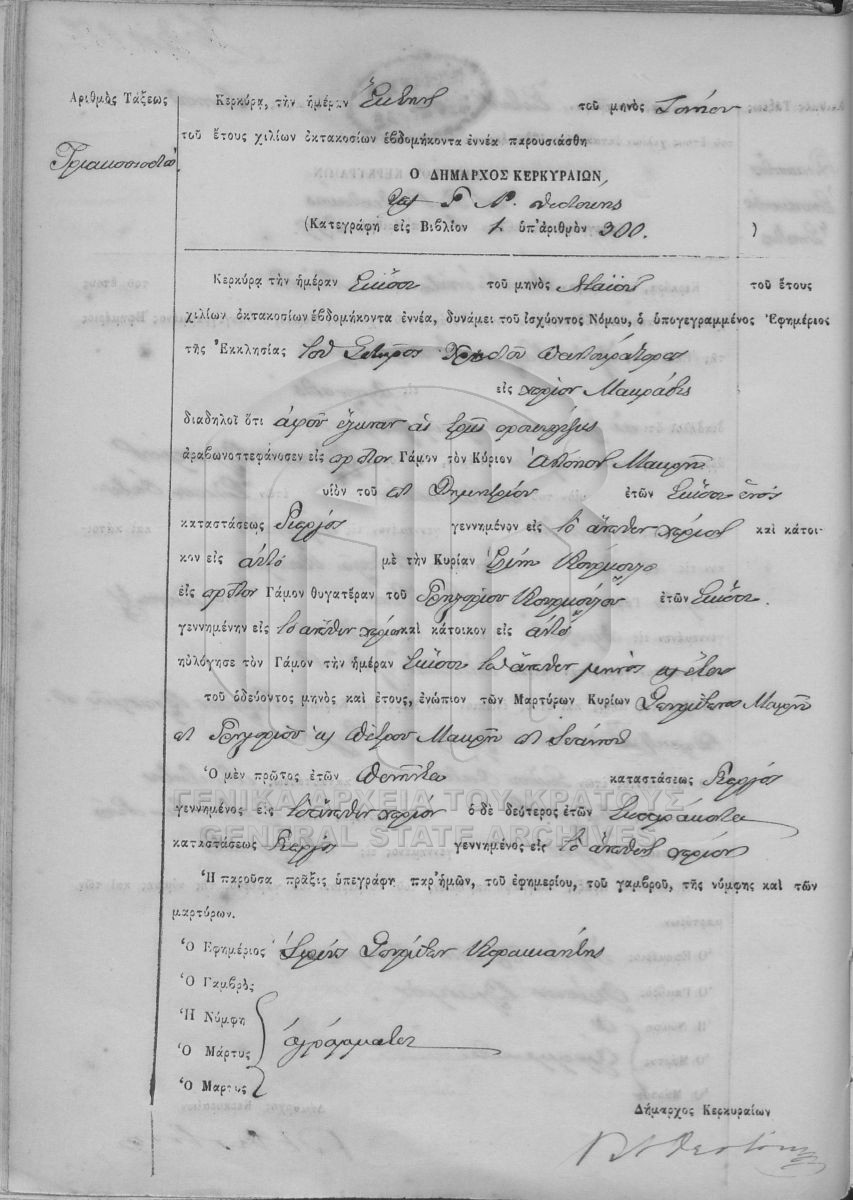 Ἀριθμὸς Τάξεως
Τριακοσιοστὸ
Κερκύρα, τὴν ἡμέραν Ἕκτην τοῦ μηνὸς Ἰουνίου
τοῦ ἔτους χιλίων ὀκτακοσίων ἑβδομήκοντα ἐννέα παρουσιάσθη
Ο ΔΗΜΑΡΧΟΣ ΚΕΡΚΥΡΑΙΩΝ,
Θεοτόκης
(Κατεγράφη εἰς Βιβλίον 1 ὑπ' ἀριθμὸν 300. )
Κερκύρα τὴν ἡμέραν Εἴκοσι τοῦ μηνὸς Μαΐου τοῦ ἔτους
χιλίων ὀκτακοσίων ἑβδομήκοντα ἐννέα, δυνάμει τοῦ ἰσχύοντος Νόμου, ὁ ὑπογεγραμμένος Ἐφημέριος
τῆς Ἐκκλησίας τοῦ Σωτῆρος Χριστοῦ Παντοκράτορος
εἰς χωρίον Μακράδες
διαδηλοῖ ὅτι ἀφοῦ ἔγιναν αἱ τρεῖς
ἀραβωνοστεφάνοσεν εἰς πρῶτον Γάμον τὸν Κύριον Ἀντώνιον Μακρῆ
υἱὸν τοῦ Δημητρίου ἐτῶν Εἴκοσι ἑνός
καταστάσεως Γεωργός γεννημένον εἰς τὸ ἄνωθεν χωρίον καὶ κάτοι-
κον εἰς αὐτό μὲ τὴν Κυρίαν
εἰς πρῶτον Γάμον θυγατέραν τοῦ ἐτῶν Εἴκοσι
γεννημένην εἰς τὸ ἄνωθεν χωρίον καὶ κάτοικον εἰς αὐτό
ηὐλόγησε τὸν Γάμον τὴν ἡμέραν Εἴκοσι τοῦ ἄνωθεν μηνὸς ἔτους
τοῦ ὁδεύοντος μηνὸς καὶ ἔτους, ἐνώπιον τῶν Μαρτύρων Κυρίων Μακρῆ
Πέτρου Μακρῆ
Ὁ μὲν πρῶτος ἐτῶν Πενῆντα καταστάσεως Γεωργός
γεννημένος εἰς τὸ ἄνωθεν χωρίον ὁ δὲ δεύτερος ἐτῶν Σαράκοντα
καταστάσεως Γεωργός γεννημένος εἰς τὸ ἄνωθεν χωρίον
Ἡ παροῦσα πρᾶξις ὑπεγράφη παρ' ἡμῶν, τοῦ ἐφημερίου, τοῦ γαμβροῦ, τῆς νύμφης καὶ τῶν
μαρτύρων.
Ὁ Ἐφημέριος Ἱερεὺς Κορακιανίτης
Ὁ Γαμβρὸς
Ἡ Νύμφη
Ὁ Μάρτυς ἀγράμματοι
Ὁ Μαρτυς
Δήμαρχος Κερκυραίων
Θεοτόκης
ΓΕΝΙΚΑ ΑΡΧΕΙΑ ΤΟΥ ΚΡΑΤΟΥΣ
GENERAL STATE ARCHIVES